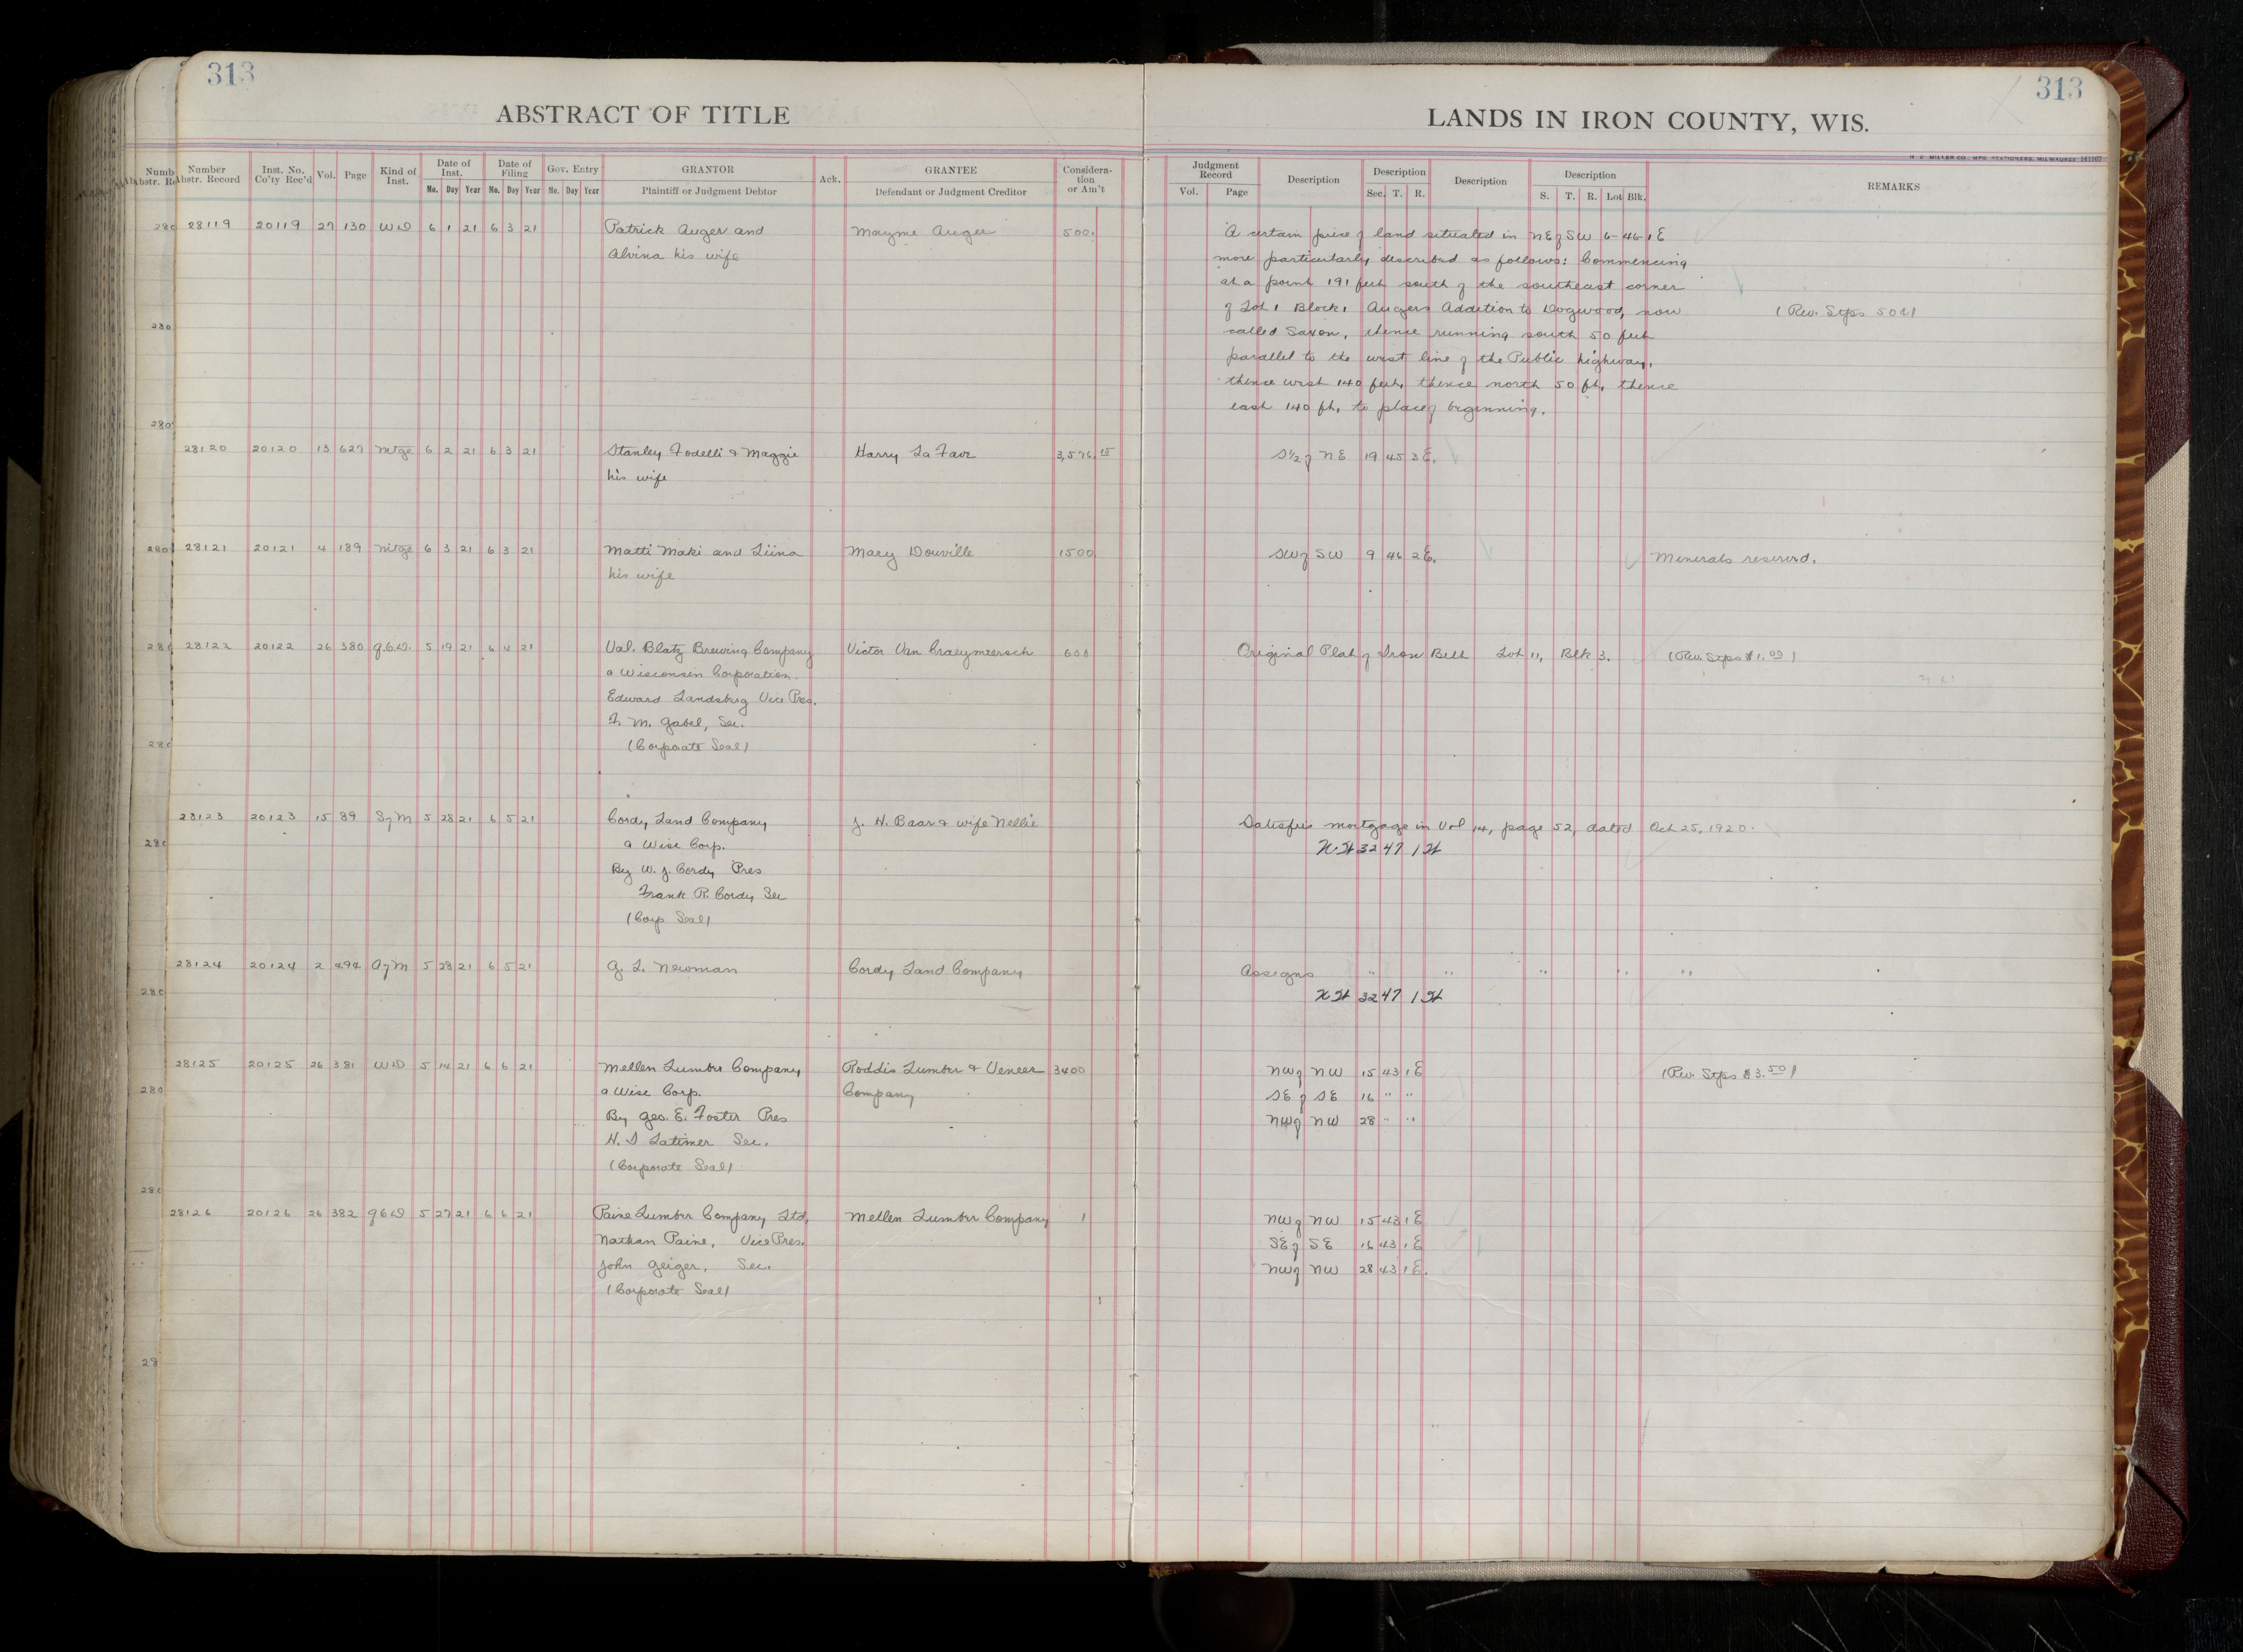 313
313
ABSTRACT OF TITLE
LANDS IN IRON COUNTY, WIS.
H. C. MILLER CO. MFG. STATIONERS, MILWAUKEE 141167
Number Abstr. Record | Inst. No. Co'ty Rec'd | Vol. | Page | Kind of Inst. | Date of Inst. Mo. Day Year | Date of Filing Mo. Day Year | Gov. Entry Mo. Day Year | GRANTOR Plaintiff or Judgment Debtor | Ack. | GRANTEE Defendant or Judgment Creditor | Consideration or Am't | Judgment Record Vol. Page | Description | Description Sec. T. R. | Description | Description S. T. R. Lot Blk. | REMARKS
28119 20119 27 130 WD 6 1 21 6 3 21 Patrick Auger and Mayme Auger 500. A certain piece of land situated in NE of SW 6-46-1E
Alvina his wife more particularly described as follows: Commencing
at a point 191 feet south of the southeast corner
of Lot 1 Block 1 Augers Addition to Dogwood, now (Rev. Stps 50¢)
called Saxon, thence running south 50 feet
parallel to the west line of the Public highway,
thence west 140 feet, thence north 50 ft, thence
east 140 ft, to place of beginning.
28120 20120 13 627 Mtge 6 2 21 6 3 21 Stanley Fodelli & Maggie Harry La Fave 3,576.15 S½ of NE 19 45 3E.
his wife
28121 20121 4 189 Mtge 6 3 21 6 3 21 Matti Maki and Liina Mary Douville 1500 SW of SW 9 46 2E. Minerals reserved.
his wife
28122 20122 26 380 Q.C.D. 5 19 21 6 4 21 Val. Blatz Brewing Company Victor Van Craeymeersch 600 Original Plat of Iron Belt Lot 11, Blk 3. (Rev. Stps $1.00)
a Wisconsin Corporation.
Edward Landsberg Vice Pres.
F. M. Gabel, Sec.
(Corporate Seal)
28123 20123 15 89 S of M 5 28 21 6 5 21 Cordy Land Company J. H. Baar & wife Nellie Satisfies mortgage in Vol 14, page 52, dated Oct 25, 1920.
a Wisc Corp. 32 47 1
By W. J. Cordy Pres
Frank R. Cordy Sec
(Corp Seal)
28124 20124 2 494 A of M 5 28 21 6 5 21 G. L. Newman Cordy Land Company Assigns " " " " "
32 47 1
28125 20125 26 381 WD 5 14 21 6 6 21 Mellen Lumber Company, Roddis Lumber & Veneer 3400 NW of NW 15 43 1E (Rev. Stps $3.50)
a Wisc Corp. Company SE of SE 16 " "
By Geo. E. Foster Pres NW of NW 28 " "
H. S Latimer Sec.
(Corporate Seal)
28126 20126 26 382 QCD 5 27 21 6 6 21 Paine Lumber Company Ltd, Mellen Lumber Company 1 NW of NW 15 43 1E
Nathan Paine, Vice Pres. SE of SE 16 43 1E
John Geiger, Sec. NW of NW 28 43 1E.
(Corporate Seal)